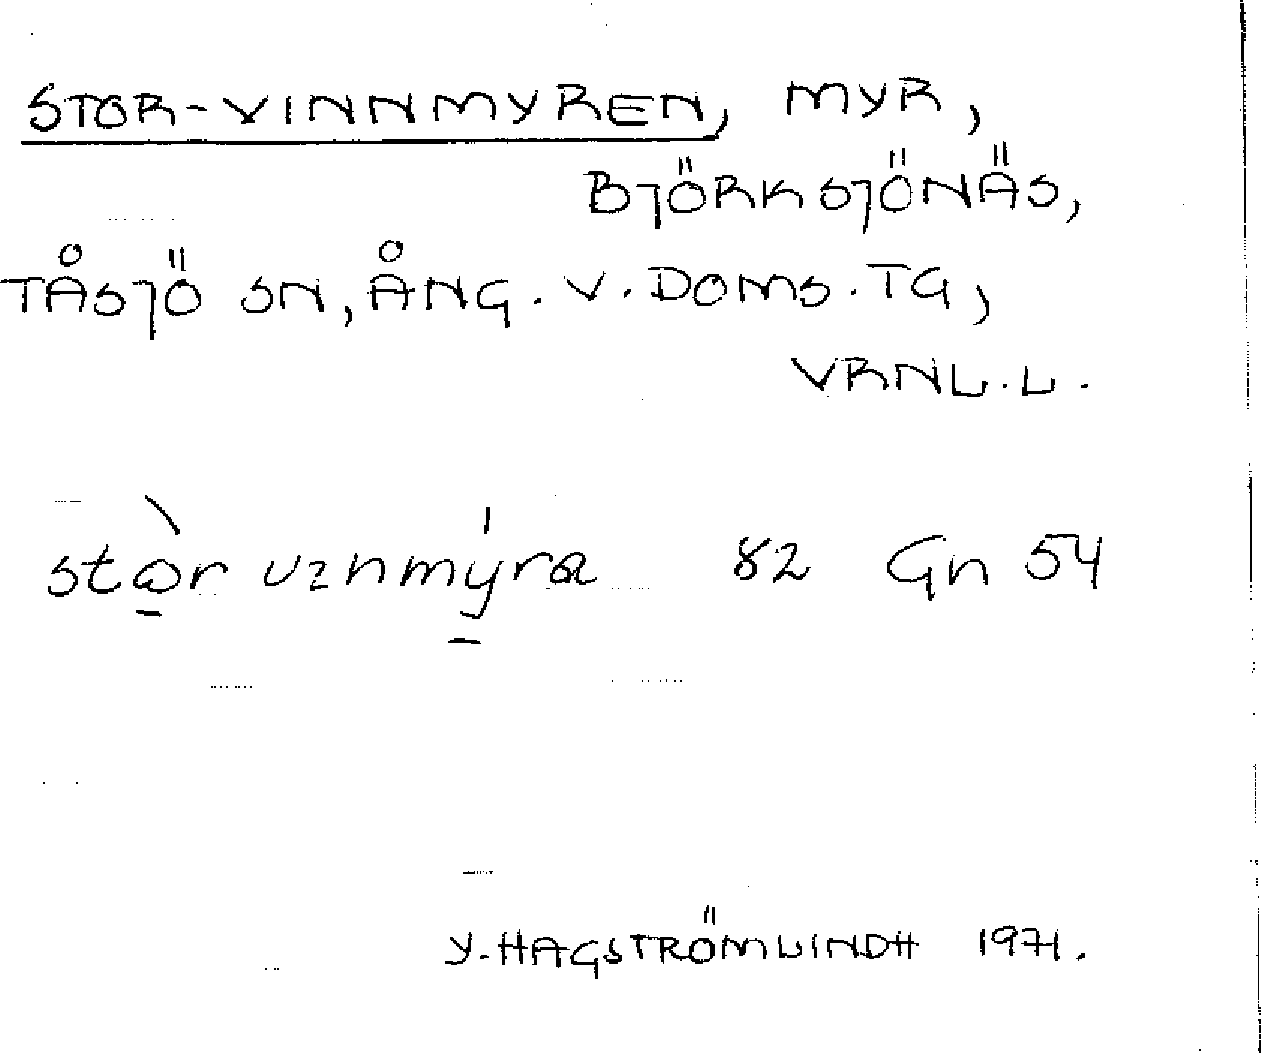 STOR-VINNMYREN, MYR,
BJÖRKSJÖNÄS,
TÅSJÖ SN, ÅNG. V. DOMS. TG,
VRNL.L.
82 Gn 54
Y. HAGSTRÖMLINDH 1971.